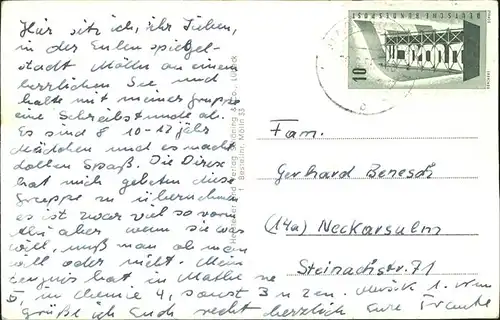 Hier sitz ich, ihr Lieben,
in der Eulenspiegel-
stadt Mölln an einem
herrlichen See und
halte mit meiner Gruppe
eine Schreibstunde ab.
Es sind 8 10-12jähr
Mädchen und es macht
dollen Spaß. Die Direx
hat mich gebeten diese
Gruppe zu übernehmen
es ist zwar viel so vorn
aber wenn sie was
will, muß man ob man
will oder nicht. Mein
Zeugnis hat in Mathe ne
5, in Chemie 4, sonst 3 n 2en. Musik 1. Nun
grüße ich Euch recht herzlich Eure Frauke
Schöning & Co., Lübeck
Verlag
1 Bestellnr. Mölln 53
DEUTSCHE BUNDESPOST
10
Fam.
Gerhard Benesch
(14a) Neckarsulm
Steinachstr. 71